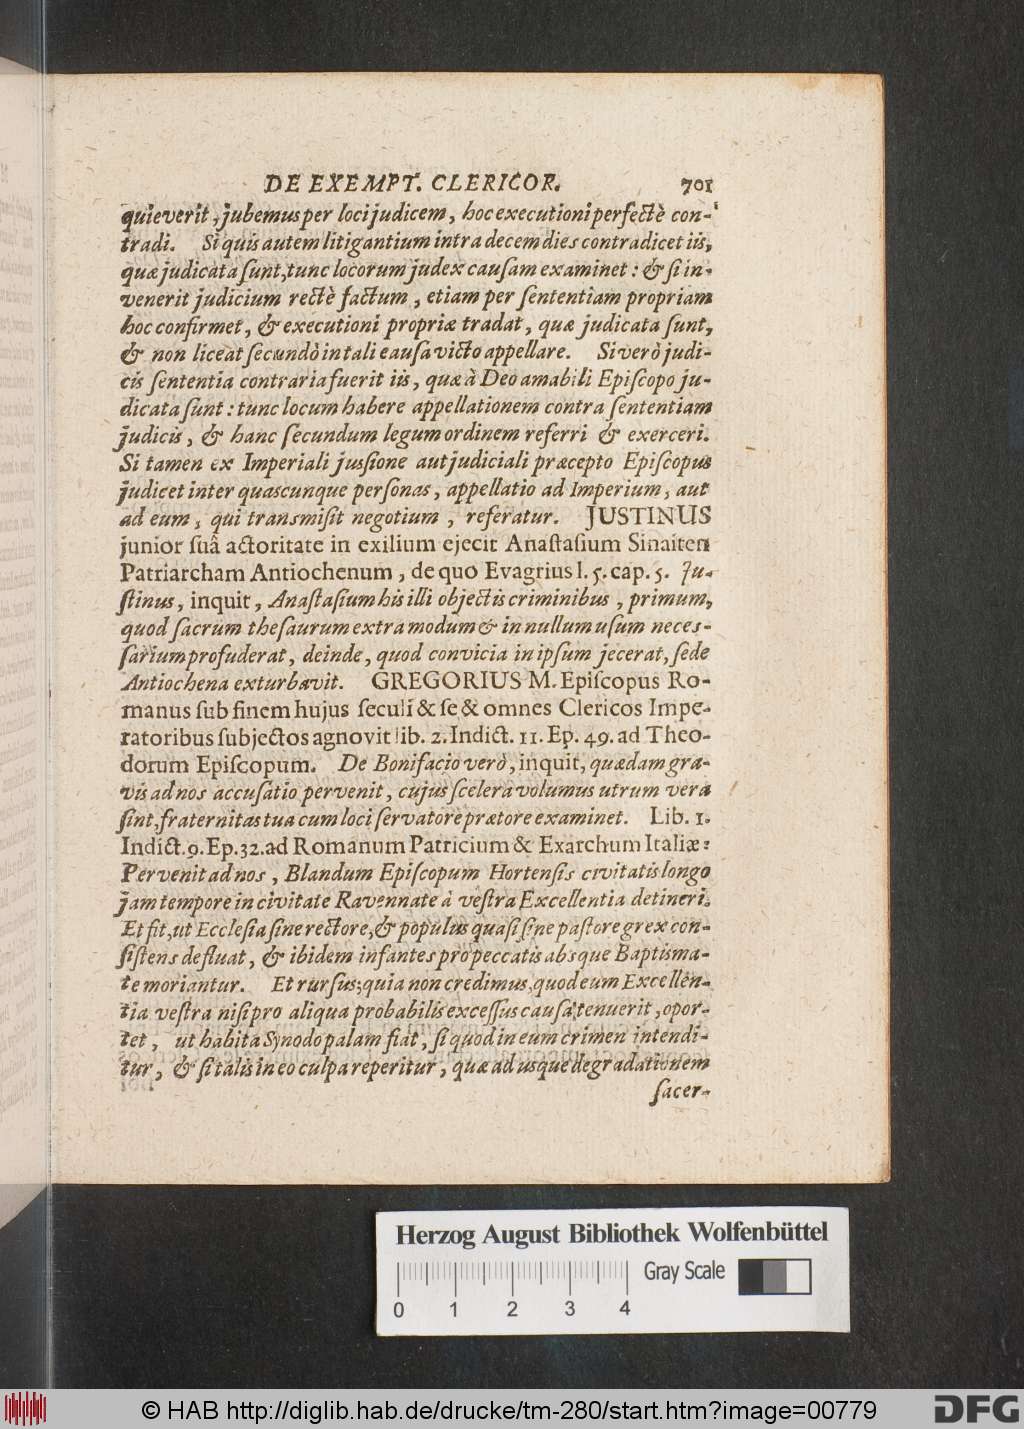 DE EXEMPT. CLERICOR. 701
quieverit, jubemus per loci judicem, hoc executioni perfectè con-
tradi. Si quis autem litigantium intra decem dies contradicet iis,
quæ judicata ſunt, tunc locorum judex cauſam examinet: & ſi in-
venerit judicium rectè factum, etiam per ſententiam propriam
hoc confirmet, & executioni propriæ tradat, quæ judicata ſunt,
& non liceat ſecundò in tali eauſa victo appellare. Si verò judi-
cis ſententia contraria fuerit iis, quæ à Deo amabili Epiſcopo ju-
dicata ſunt: tunc locum habere appellationem contra ſententiam
judicis, & hanc ſecundum legum ordinem referri & exerceri.
Si tamen ex Imperiali juſſione aut judiciali præcepto Epiſcopus
judicet inter quascunque perſonas, appellatio ad Imperium, aut
ad eum, qui transmiſit negotium, referatur. JUSTINUS
junior ſuâ actoritate in exilium ejecit Anaſtaſium Sinaiten
Patriarcham Antiochenum, de quo Evagrius l. 5. cap. 5. Ju-
ſtinus, inquit, Anaſtaſium his illi objectis criminibus, primum,
quod ſacrum theſaurum extra modum & in nullum uſum neces-
ſarium profuderat, deinde, quod convicia in ipſum jecerat, ſede
Antiochena exturbavit. GREGORIUS M. Epiſcopus Ro-
manus ſub finem hujus ſeculi & ſe & omnes Clericos Impe-
ratoribus ſubjectos agnovit lib. 2. Indict. 11. Ep. 49. ad Theo-
dorum Epiſcopum. De Bonifacio verò, inquit, quædam gra-
vis ad nos accuſatio pervenit, cujus ſcelera volumus utrum vera
ſint, fraternitas tua cum loci ſervatore prætore examinet. Lib. 1.
Indict. 9. Ep. 32. ad Romanum Patricium & Exarchum Italiæ:
Pervenit ad nos, Blandum Epiſcopum Hortenſis civitatis longo
jam tempore in civitate Ravennate à veſtra Excellentia detineri.
Et fit, ut Eccleſia ſine rectore, & populus quaſi ſine paſtore grex con-
ſiſtens defluat, & ibidem infantes pro peccatis absque Baptisma-
te moriantur. Et rurſus; quia non credimus, quod eum Excellen-
tia veſtra niſi pro aliqua probabilis exceſſus cauſa tenuerit, opor-
tet, ut habita Synodo palam fiat, ſi quod in eum crimen intendi-
tur, & ſi talis in eo culpa reperitur, quæ ad usque degradationem
ſacer-
Herzog August Bibliothek Wolfenbüttel
Gray Scale
0 1 2 3 4
© HAB http://diglib.hab.de/drucke/tm-280/start.htm?image=00779
DFG